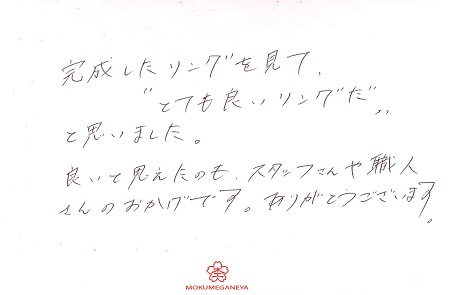 完成したリングを見て、
"とても良いリングだ"
と思いました。
良いと思えたのも、スタッフさんや職人
さんのおかげです。ありがとうございます。
MOKUMEGANEYA